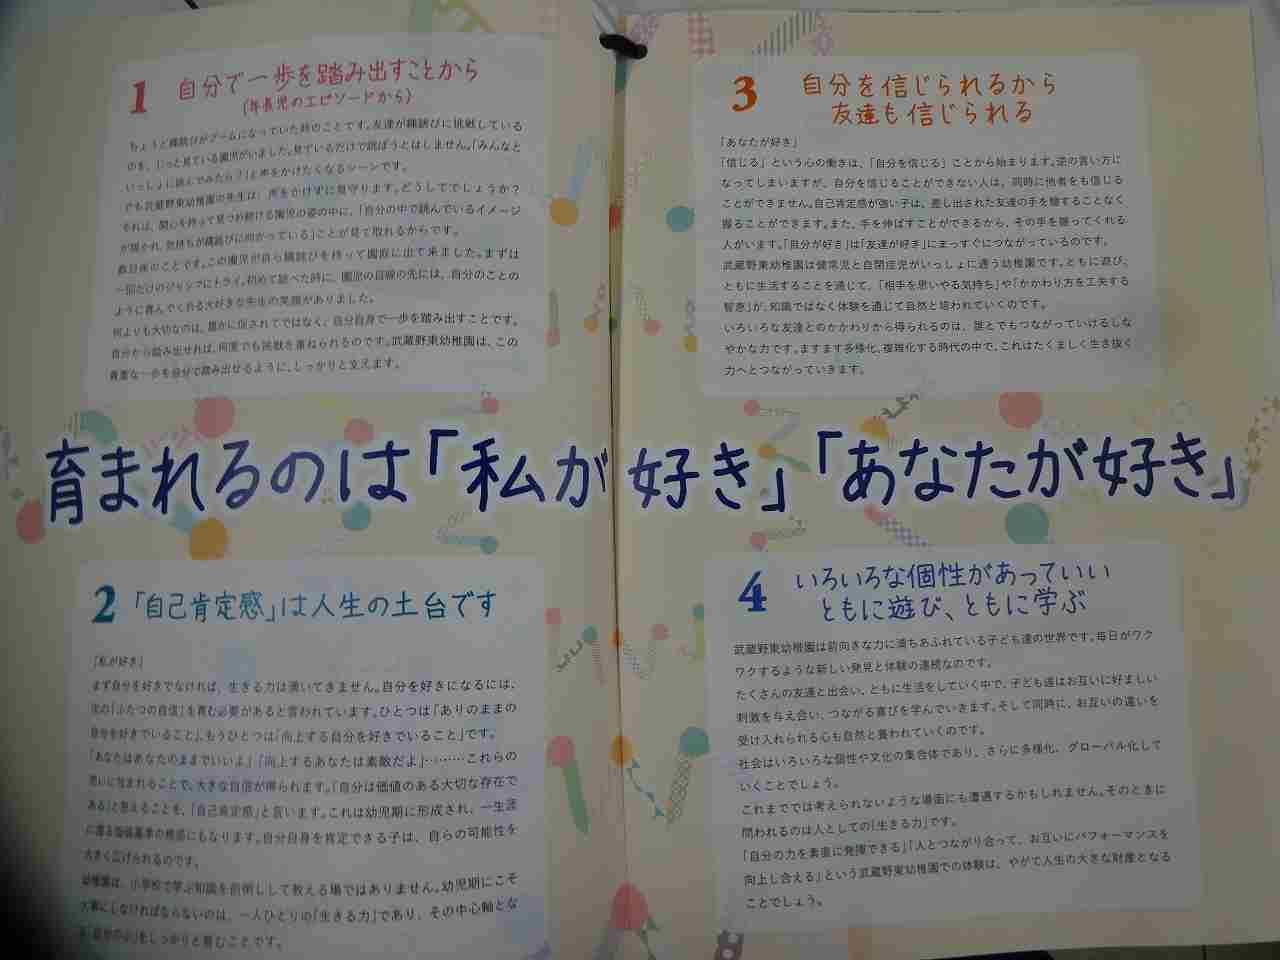 1 自分で一歩を踏み出すことから
(年長児のエピソードから)
ちょうど縄跳びがブームになっていた時のことです。友達が縄跳びに挑戦している
のを、じっと見ている園児がいました。見ているだけで跳ぼうとはしません。「みんなと
いっしょに跳んでみたら?」と声をかけたくなるシーンです。
でも武蔵野東幼稚園の先生は、声をかけずに見守ります。どうしてでしょうか?
それは、関心を持って見つめ続ける園児の姿の中に、「自分の中で跳んでいるイメージ
が描かれ、気持ちが縄跳びに向かっている」ことが見て取れるからです。
数日後のことです。この園児が自ら縄跳びを持って園庭に出て来ました。まずは
一回だけのジャンプにトライ。初めて跳べた時に、園児の目線の先には、自分のことの
ように喜んでくれる大好きな先生の笑顔がありました。
何よりも大切なのは、誰かに促されてではなく、自分自身で一歩を踏み出すことです。
自分から踏み出せれば、何度でも挑戦を重ねられるのです。武蔵野東幼稚園は、この
貴重な一歩を自分で踏み出せるように、しっかりと支えます。
3 自分を信じられるから
友達も信じられる
「あなたが好き」
「信じる」という心の働きは、「自分を信じる」ことから始まります。逆の言い方に
なってしまいますが、自分を信じることができない人は、同時に他者をも信じる
ことができません。自己肯定感が強い子は、差し出された友達の手を疑うことなく
握ることができます。また、手を伸ばすことができるから、その手を握ってくれる
人がいます。「自分が好き」は「友達が好き」にまっすぐにつながっているのです。
武蔵野東幼稚園は健常児と自閉症児がいっしょに通う幼稚園です。ともに遊び、
ともに生活することを通じて、「相手を思いやる気持ち」や「かかわり方を工夫する
智恵」が、知識ではなく体験を通じて自然と培われていくのです。
いろいろな友達とのかかわりから得られるのは、誰とでもつながっていけるしな
やかな力です。ますます多様化、複雑化する時代の中で、これはたくましく生き抜く
力へとつながっていきます。
育まれるのは「私が好き」「あなたが好き」
2 「自己肯定感」は人生の土台です
「私が好き」
まず自分を好きでなければ、生きる力は湧いてきません。自分を好きになるには、
次の「ふたつの自信」を育む必要があると言われています。ひとつは「ありのままの
自分を好きでいること」、もうひとつは「向上する自分を好きでいること」です。
「あなたはあなたのままでいいよ」「向上するあなたは素敵だよ」………これらの
思いに包まれることで、大きな自信が得られます。「自分は価値のある大切な存在で
ある」と思えることを、「自己肯定感」と言います。これは幼児期に形成され、一生涯
に渡る価値基準の根底にもなります。自分自身を肯定できる子は、自らの可能性を
大きく広げられるのです。
幼稚園は、小学校で学ぶ知識を前倒しして教える場ではありません。幼児期にこそ
大事にしなければならないのは、一人ひとりの「生きる力」であり、その中心軸とな
る「自分の心」をしっかりと育むことです。
4 いろいろな個性があっていい
ともに遊び、ともに学ぶ
武蔵野東幼稚園は前向きな力に満ちあふれている子ども達の世界です。毎日がワク
ワクするような新しい発見と体験の連続なのです。
たくさんの友達と出会い、ともに生活をしていく中で、子ども達はお互いに好ましい
刺激を与え合い、つながる喜びを学んでいきます。そして同時に、お互いの違いを
受け入れられる心も自然と養われていくのです。
社会はいろいろな個性や文化の集合体であり、さらに多様化、グローバル化して
いくことでしょう。
これまででは考えられないような場面にも遭遇するかもしれません。そのときに
問われるのは人としての「生きる力」です。
「自分の力を素直に発揮できる」「人とつながり合って、お互いにパフォーマンスを
向上し合える」という武蔵野東幼稚園での体験は、やがて人生の大きな財産となる
ことでしょう。